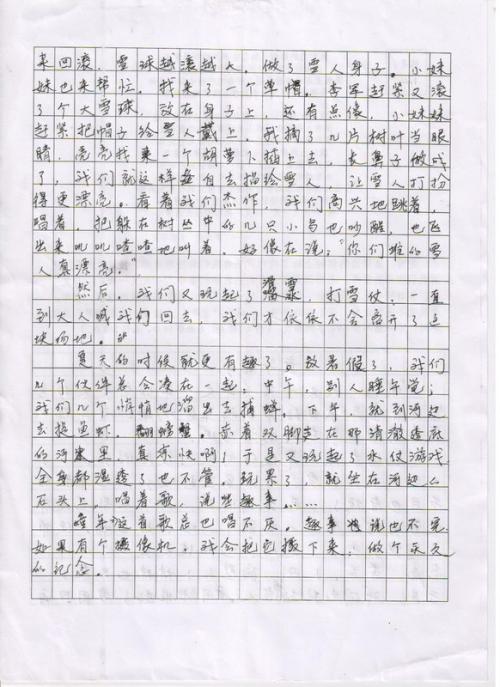 来回滚，雪球越滚越大。做了雪人身子。小妹
妹也来帮忙，找来了一个草帽。李军赶紧又滚
了个大雪球，放在身子上，还有点像，小妹妹
赶紧把帽子给雪人戴上，我摘了几片树叶当眼
睛，亮亮找来一个胡萝卜插上去，长鼻子做成
了，我们就这样各自去描绘雪人，让雪人打扮
得更漂亮。看着我们杰作，我们高兴地跳着，
唱着，把躲在树丛中的几只小鸟也吵醒，也飞
出来叽叽喳喳地叫着，好像在说：“你们堆的雪
人真漂亮。”
然后，我们又玩起了滑雪，打雪仗，一直
到大人喊我们回去，我们才依依不舍离开了这
块场地。
夏天的时候就更有趣了。放暑假了，我们
几个伙伴总会凑在一起，中午，别人睡午觉；
我们几个悄悄地溜出去捕蝉。下午，就到河边
去捉鱼虾，螃蟹。赤着双脚走在那清澈透底
的河里，真凉快啊；于是又玩起了水仗游戏
全身都湿透了也不管。玩累了，就坐在河边
石头上，唱着歌，说些趣事……
童年这首歌总也唱不厌。趣事说也不完
如果有个摄像机，我会把它摄下来，做个永久
的记念。